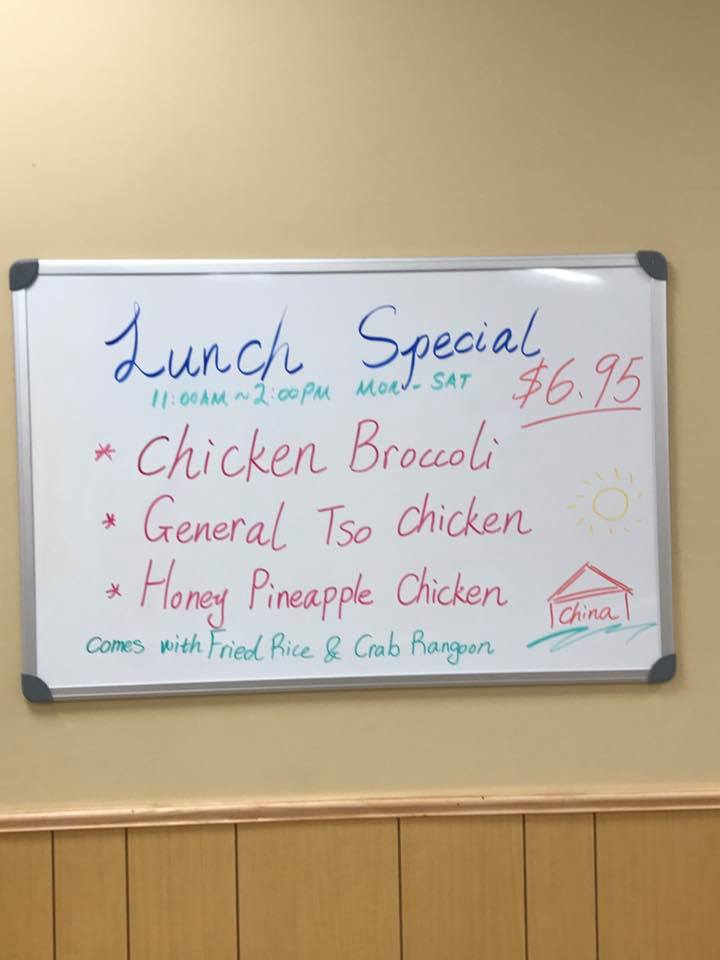 Lunch Special
11:00AM ~ 2:00PM MON - SAT
$6.95
* Chicken Broccoli
* General Tso Chicken
* Honey Pineapple Chicken
China
Comes with Fried Rice & Crab Rangoon